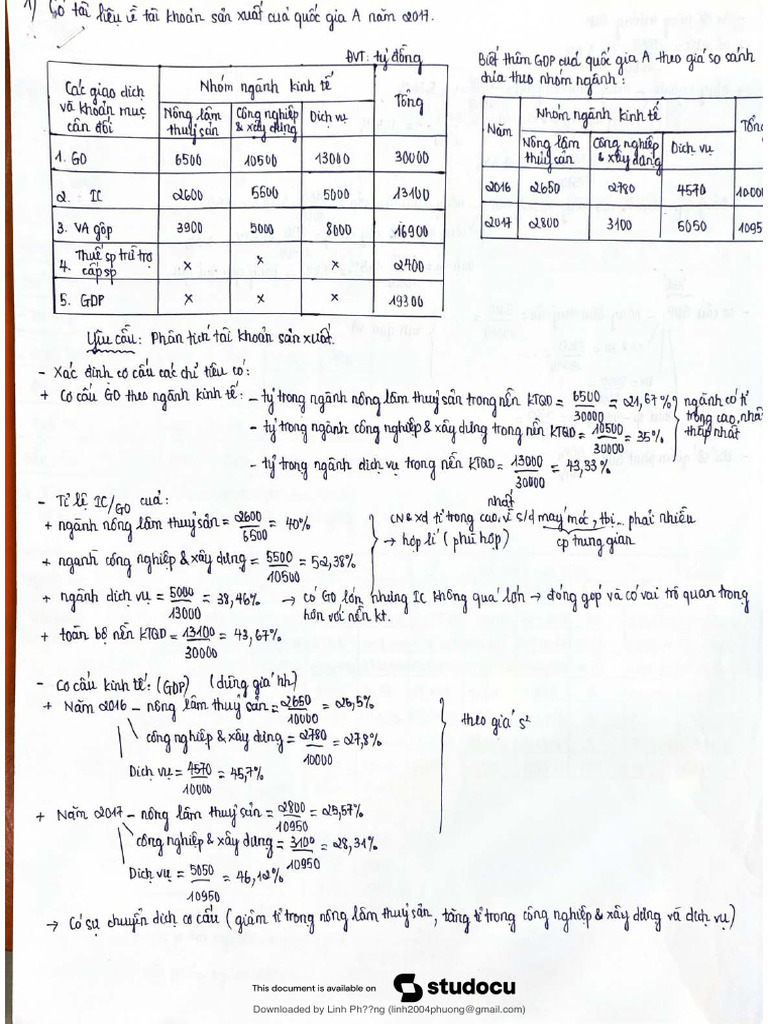 1) Có tài liệu về tài khoản sản xuất của quốc gia A năm 2017.
ĐVT: tỷ đồng
Các giao dịch và khoản mục cân đối | Nhóm ngành kinh tế | Tổng
Nông lâm thuỷ sản | Công nghiệp & xây dựng | Dịch vụ
1. GO | 6500 | 10500 | 13000 | 30000
2. IC | 2600 | 5500 | 5000 | 13100
3. VA gộp | 3900 | 5000 | 8000 | 16900
4. Thuế sp trừ trợ cấp sp | x | x | x | 2400
5. GDP | x | x | x | 19300
Biết thêm GDP của quốc gia A theo giá so sánh
chia theo nhóm ngành:
Năm | Nhóm ngành kinh tế | Tổng
Nông lâm thuỷ sản | Công nghiệp & xây dựng | Dịch vụ
2016 | 2650 | 2780 | 4570 | 1000
2017 | 2800 | 3100 | 5050 | 1095
Yêu cầu: Phân tích tài khoản sản xuất.
- Xác định cơ cấu các chỉ tiêu có:
+ Cơ cấu GO theo ngành kinh tế: - tỷ trọng ngành nông lâm thuỷ sản trong nền KTQD = 6500/30000 = 21,67%
- tỷ trọng ngành công nghiệp & xây dựng trong nền KTQD = 10500/30000 = 35%
- tỷ trọng ngành dịch vụ trong nền KTQD = 13000/30000 = 43,33%
ngành có tỉ
trọng cao nhất
thấp nhất
- Tỉ lệ IC/GO của:
+ ngành nông lâm thuỷ sản = 2600/6500 = 40%
+ ngành công nghiệp & xây dựng = 5500/10500 = 52,38%
nhất
CN & xd tỉ trọng cao vì s/d máy móc, thbị... phải nhiều
cp trung gian
→ hợp lí (phù hợp)
+ ngành dịch vụ = 5000/13000 = 38,46% → có GO lớn nhưng IC không quá lớn → đóng góp và có vai trò quan trọng
hơn với nền kt.
+ toàn bộ nền KTQD = 13100/30000 = 43,67%
- Cơ cấu kinh tế: (GDP) (dùng giá hh)
+ Năm 2016 - nông lâm thuỷ sản = 2650/10000 = 26,5%
công nghiệp & xây dựng = 2780/10000 = 27,8%
Dịch vụ = 4570/10000 = 45,7%
theo giá s²
+ Năm 2017 - nông lâm thuỷ sản = 2800/10950 = 25,57%
công nghiệp & xây dựng = 3100/10950 = 28,31%
Dịch vụ = 5050/10950 = 46,12%
→ Có sự chuyển dịch cơ cấu (giảm tỉ trọng nông lâm thuỷ sản, tăng tỉ trọng công nghiệp & xây dựng và dịch vụ)
This document is available on studocu
Downloaded by Linh Ph??ng (linh2004phuong@gmail.com)